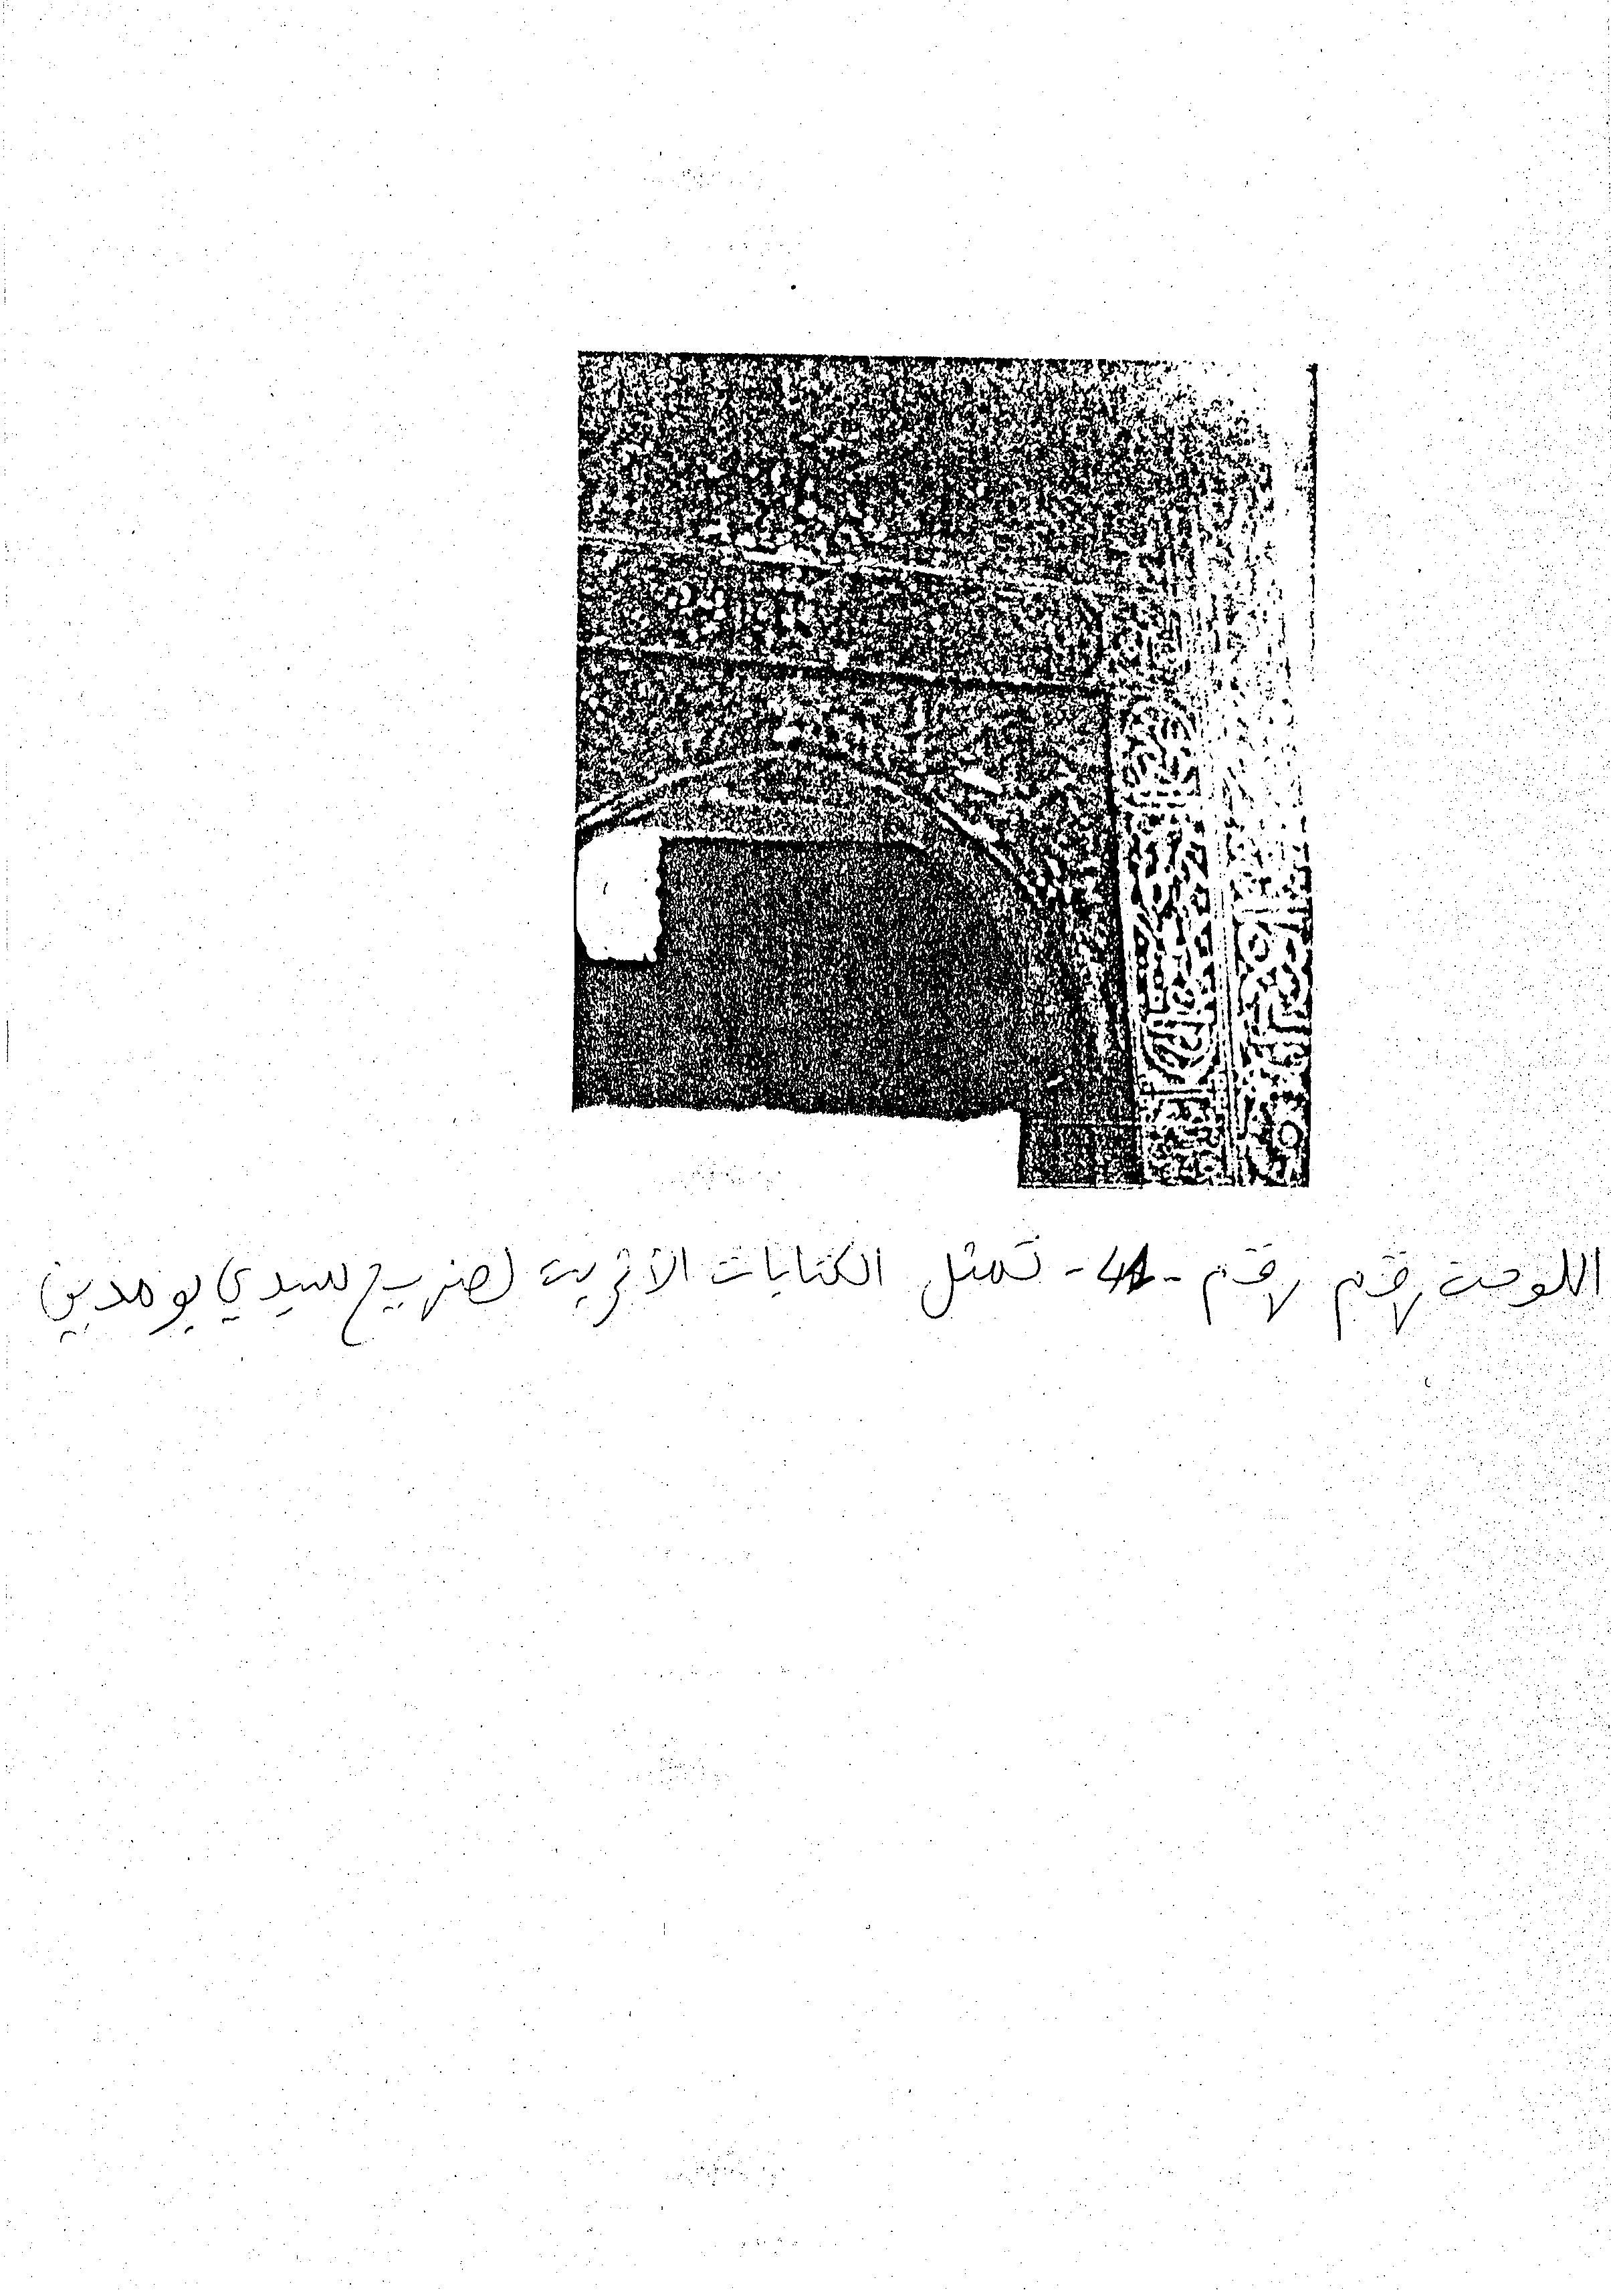 اللوحة رقم رقم -41- تمثل الكتابات الأثرية لضريح لسيدي بومدين